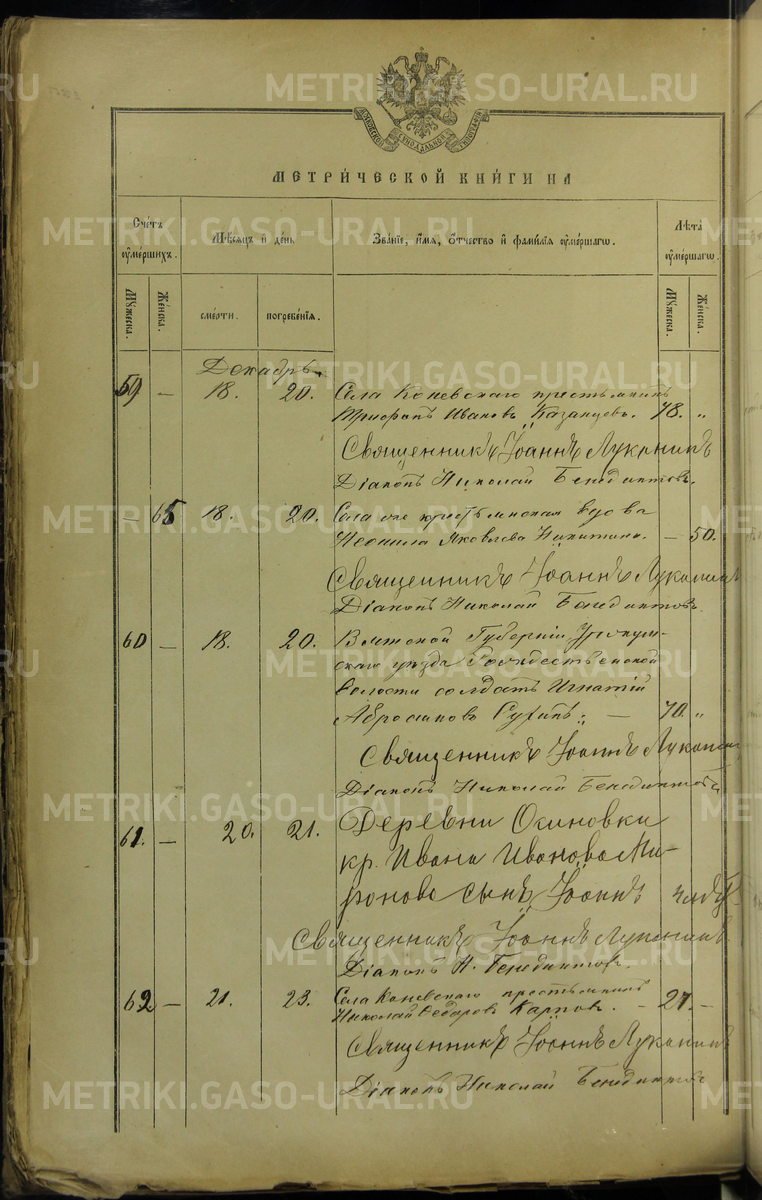 METRIKI.GASO-URAL.RU
МОСКОВСКОЙ СѴНОДАЛЬНОЙ ТИПОГРАФІИ
МЕТРИ́ЧЕСКОЙ КНИ́ГИ НА
Сче́тъ ᲂу҆ме́ршихъ.
Мѣ́сяцъ и де́нь
Зва́нїе, и҆́мя, ѻ҆́тчество и҆ фами́лїя ᲂу҆ме́ршагѡ.
Лѣ́та ᲂу҆ме́ршагѡ.
Мꙋ́жеска.
Же́нска.
сме́рти.
погребе́нїя.
Мꙋ́жеска.
Же́нска.
Декабрь.
59 — 18. 20. Села Коневскаго крестьянинъ
Трифонъ Ивановъ Казанцевъ. 78. „
Священникъ Іоаннъ Луканинъ
Діаконъ Николай Бенедиктовъ.
— 65 18. 20. Села оне крестьянская вдова
Неонила Яковлева Никитина. — 50.
Священникъ Іоаннъ Луканинъ
Діаконъ Николай Бенедиктовъ.
60 — 18. 20. Вятской Губерніи, Уржум-
скаго уезда Рождественской
волости солдатъ Игнатій
Абросимовъ — 70. „
Священникъ Іоаннъ Луканинъ
Діаконъ Николай Бенедиктовъ
61. — 20. 21. Деревни Осиновки
кр. Ивана Иванова Ми-
ронова сынъ Іоаннъ
Священникъ Іоаннъ Луканинъ.
Діаконъ Н. Бенедиктовъ.
62 — 21. 23. Села Коневскаго крестьянинъ
Николай Федоровъ Карповъ. — 27. —
Священникъ Іоаннъ Луканинъ
Діаконъ Николай Бенедиктовъ